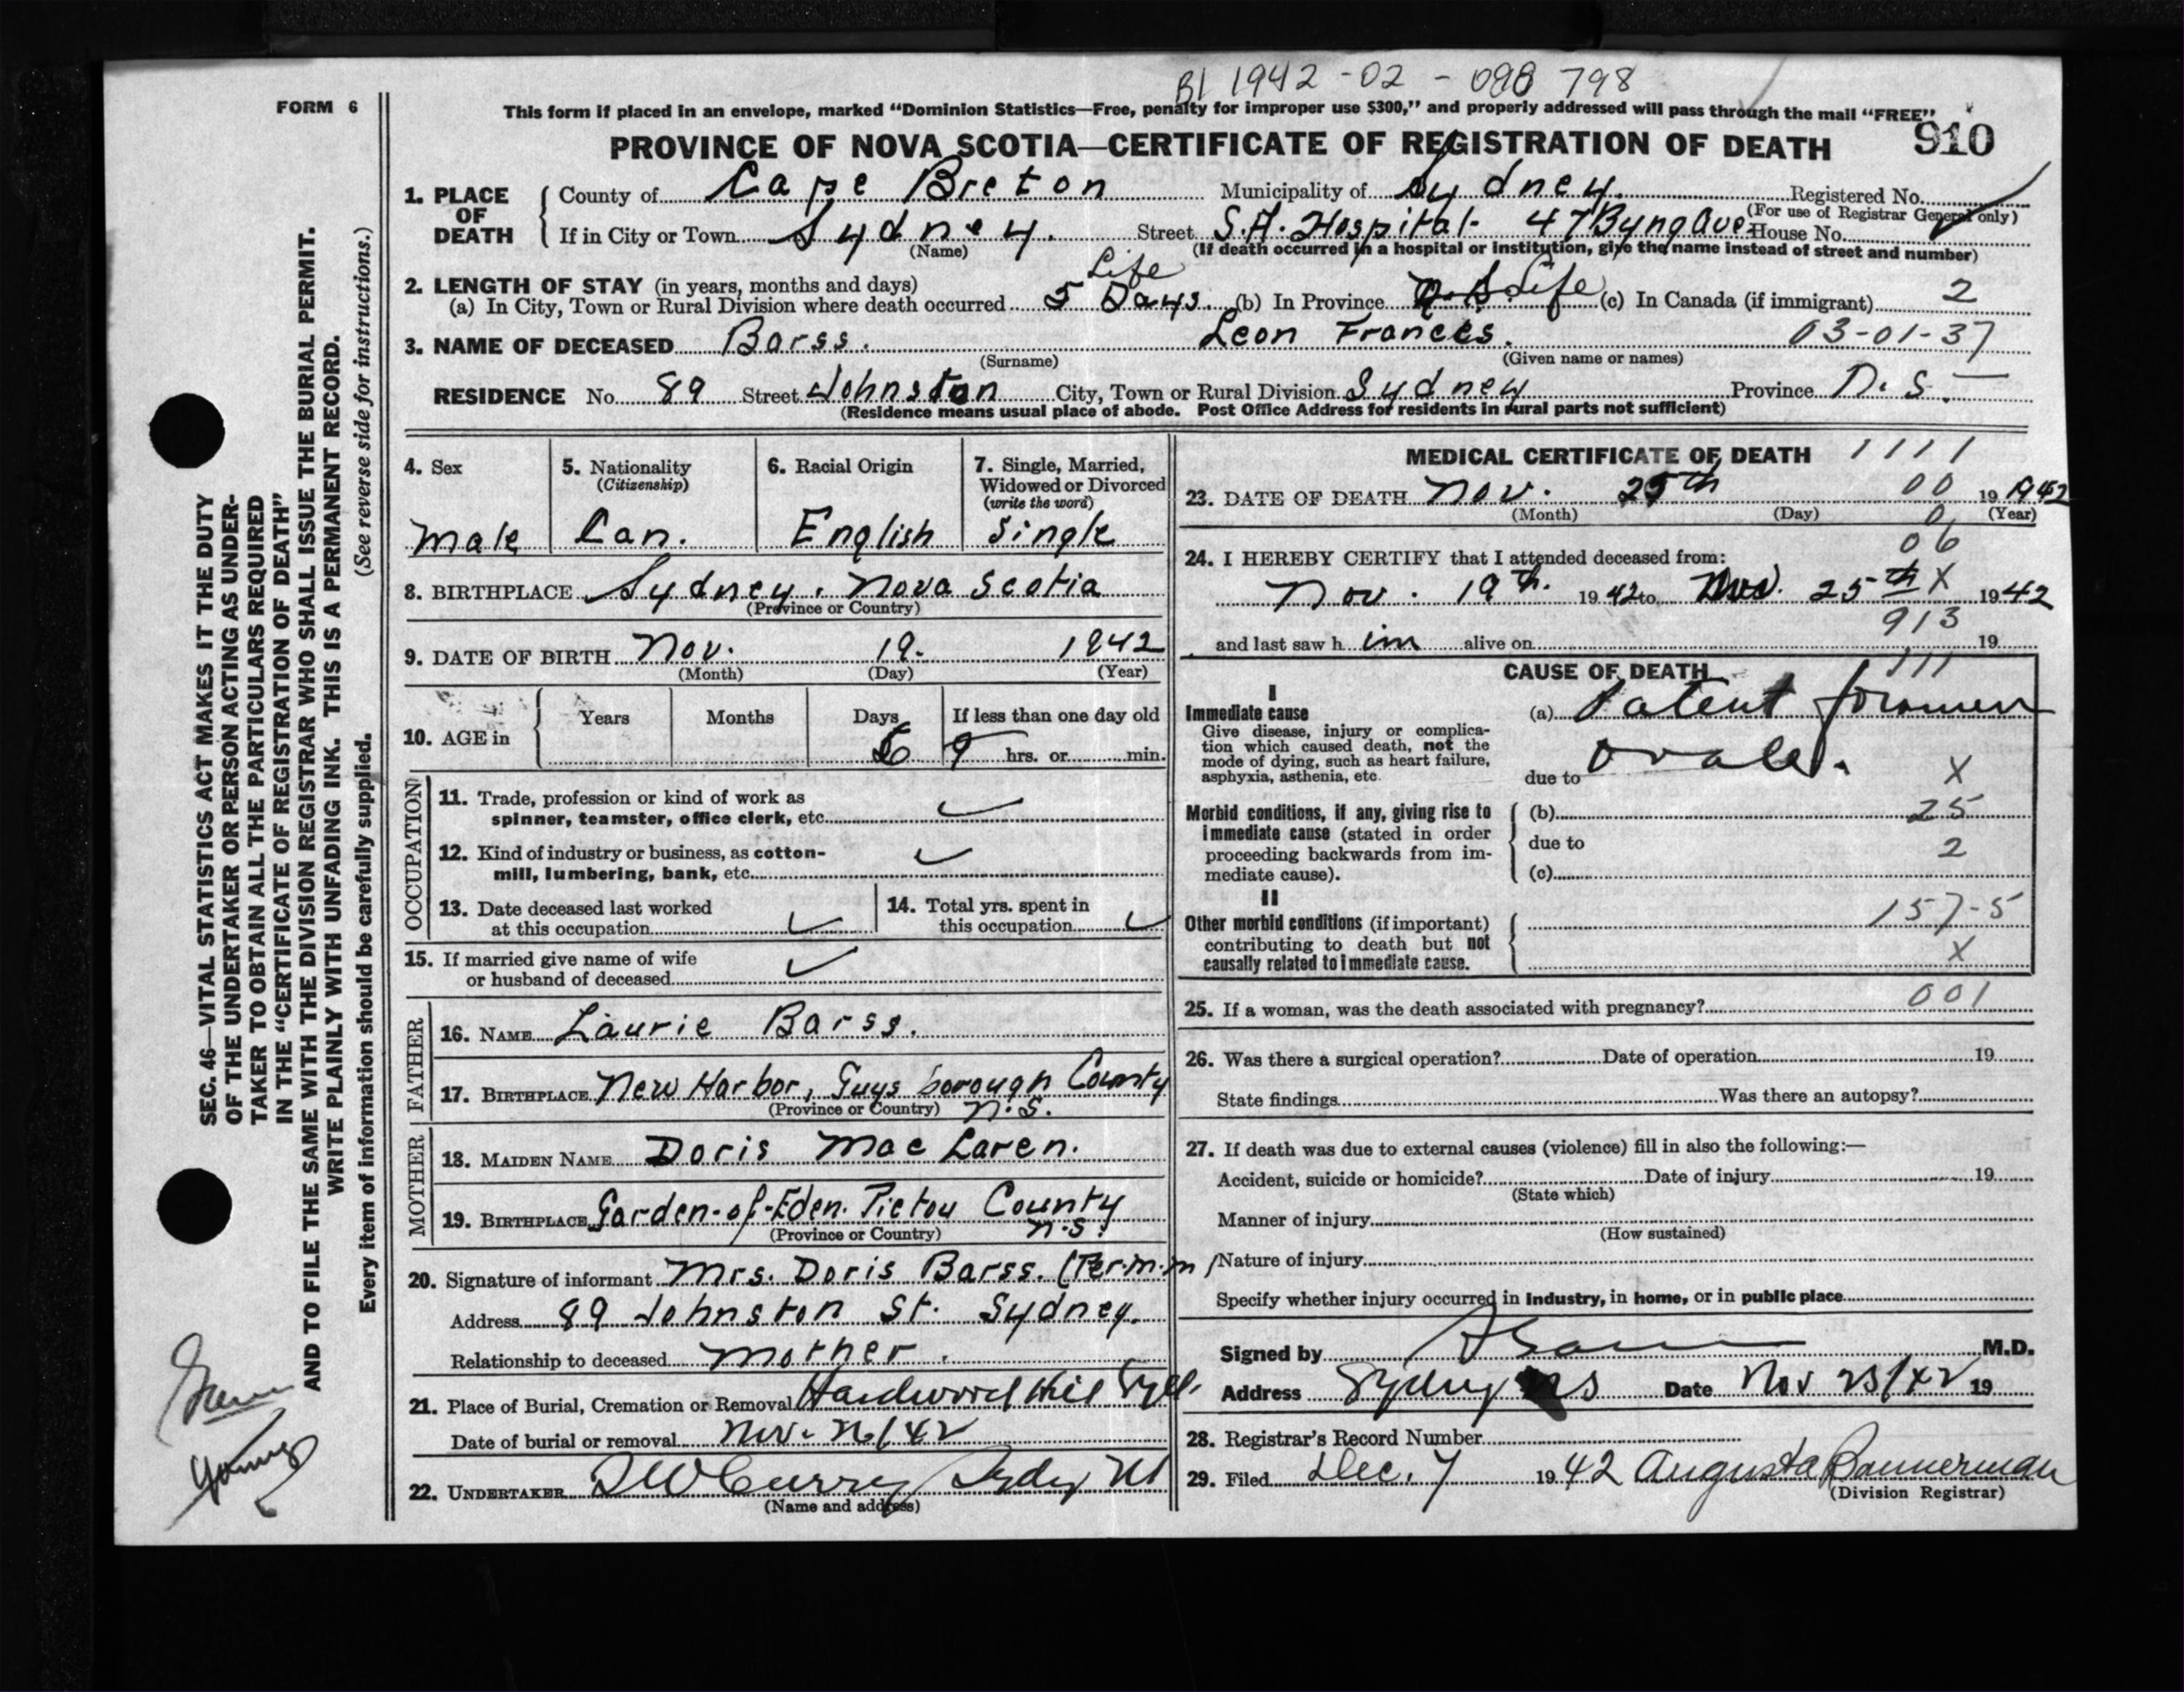 BI 1942-02-098 798
FORM 6
This form if placed in an envelope, marked “Dominion Statistics—Free, penalty for improper use $300,” and properly addressed will pass through the mail “FREE”
PROVINCE OF NOVA SCOTIA—CERTIFICATE OF REGISTRATION OF DEATH 910
1. PLACE OF DEATH County of Cape Breton Municipality of Sydney. Registered No.
(For use of Registrar General only)
If in City or Town Sydney. Street S.A. Hospital- 47 Byng Ave House No.
(Name) (If death occurred in a hospital or institution, give the name instead of street and number)
2. LENGTH OF STAY (in years, months and days) Life
(a) In City, Town or Rural Division where death occurred 5 Days (b) In Province N.S. Life (c) In Canada (if immigrant) 2
3. NAME OF DECEASED Barss. Leon Frances. 03-01-37
(Surname) (Given name or names)
RESIDENCE No. 89 Street Johnston City, Town or Rural Division Sydney Province N.S.
(Residence means usual place of abode. Post Office Address for residents in rural parts not sufficient)
4. Sex 5. Nationality (Citizenship) 6. Racial Origin 7. Single, Married, Widowed or Divorced (write the word)
Male Can. English Single
8. BIRTHPLACE Sydney. Nova Scotia
(Province or Country)
9. DATE OF BIRTH Nov. 19. 1942
(Month) (Day) (Year)
10. AGE in Years Months Days If less than one day old
9 hrs. or min.
OCCUPATION
11. Trade, profession or kind of work as
spinner, teamster, office clerk, etc.
12. Kind of industry or business, as cotton-
mill, lumbering, bank, etc.
13. Date deceased last worked
at this occupation
14. Total yrs. spent in
this occupation
15. If married give name of wife
or husband of deceased
FATHER
16. NAME Laurie Barss.
17. BIRTHPLACE New Harbor, Guysborough County
(Province or Country) N.S.
MOTHER
18. MAIDEN NAME Doris MacLaren.
19. BIRTHPLACE Garden-of-Eden. Pictou County
(Province or Country) N.S.
20. Signature of informant Mrs. Doris Barss. (Per. M.M
Address 89 Johnston St. Sydney.
Relationship to deceased Mother.
21. Place of Burial, Cremation or Removal Hardwood Hill
Date of burial or removal Nov. 26/42
22. UNDERTAKER Curry Sydney NS
(Name and address)
MEDICAL CERTIFICATE OF DEATH 1111
23. DATE OF DEATH Nov. 25th 00 19 1942
(Month) (Day) 0 (Year)
06
24. I HEREBY CERTIFY that I attended deceased from:
Nov. 19th. 1942 to Nov. 25th X 1942
913
and last saw h im alive on 19
CAUSE OF DEATH 111
I
Immediate cause
Give disease, injury or complica-
tion which caused death, not the
mode of dying, such as heart failure,
asphyxia, asthenia, etc.
(a) Patent foramen
due to ovale. X
Morbid conditions, if any, giving rise to
immediate cause (stated in order
proceeding backwards from im-
mediate cause).
(b) 25
due to 2
(c)
II
Other morbid conditions (if important)
contributing to death but not
causally related to immediate cause.
157-5
X
001
25. If a woman, was the death associated with pregnancy?
26. Was there a surgical operation? Date of operation 19
State findings Was there an autopsy?
27. If death was due to external causes (violence) fill in also the following:—
Accident, suicide or homicide? Date of injury 19
(State which)
Manner of injury
(How sustained)
Nature of injury
Specify whether injury occurred in industry, in home, or in public place
Signed by M.D.
Address Sydney NS Date Nov 25/42 19
28. Registrar's Record Number
29. Filed Dec. 7 1942 Augusta Bannerman
(Division Registrar)
SEC. 46—VITAL STATISTICS ACT MAKES IT THE DUTY
OF THE UNDERTAKER OR PERSON ACTING AS UNDER-
TAKER TO OBTAIN ALL THE PARTICULARS REQUIRED
IN THE “CERTIFICATE OF REGISTRATION OF DEATH”
AND TO FILE THE SAME WITH THE DIVISION REGISTRAR WHO SHALL ISSUE THE BURIAL PERMIT.
WRITE PLAINLY WITH UNFADING INK. THIS IS A PERMANENT RECORD.
Every item of information should be carefully supplied. (See reverse side for instructions.)